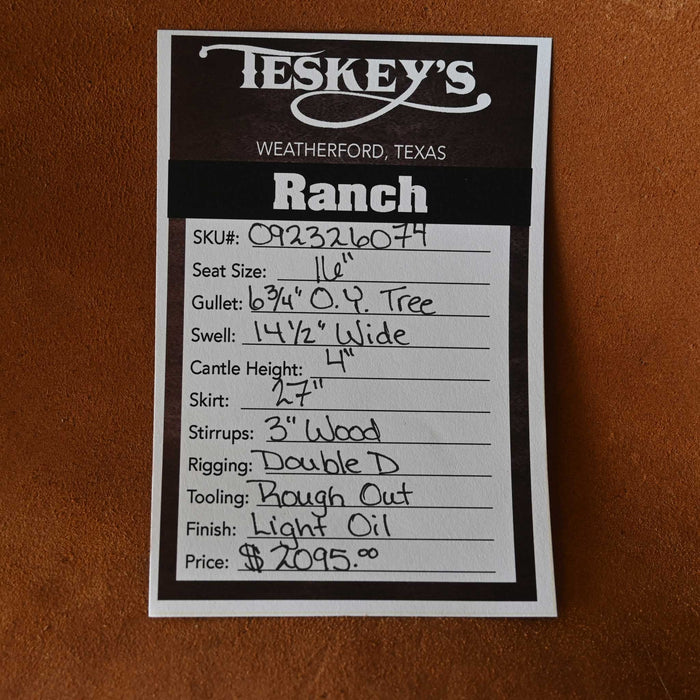 TESKEY'S
WEATHERFORD, TEXAS
Ranch
SKU#: 092326074
Seat Size: 16"
Gullet: 6 3/4" O.Y. Tree
Swell: 14 1/2" Wide
Cantle Height: 4"
Skirt: 27"
Stirrups: 3" Wood
Rigging: Double D
Tooling: Rough Out
Finish: Light Oil
Price: $2095.00